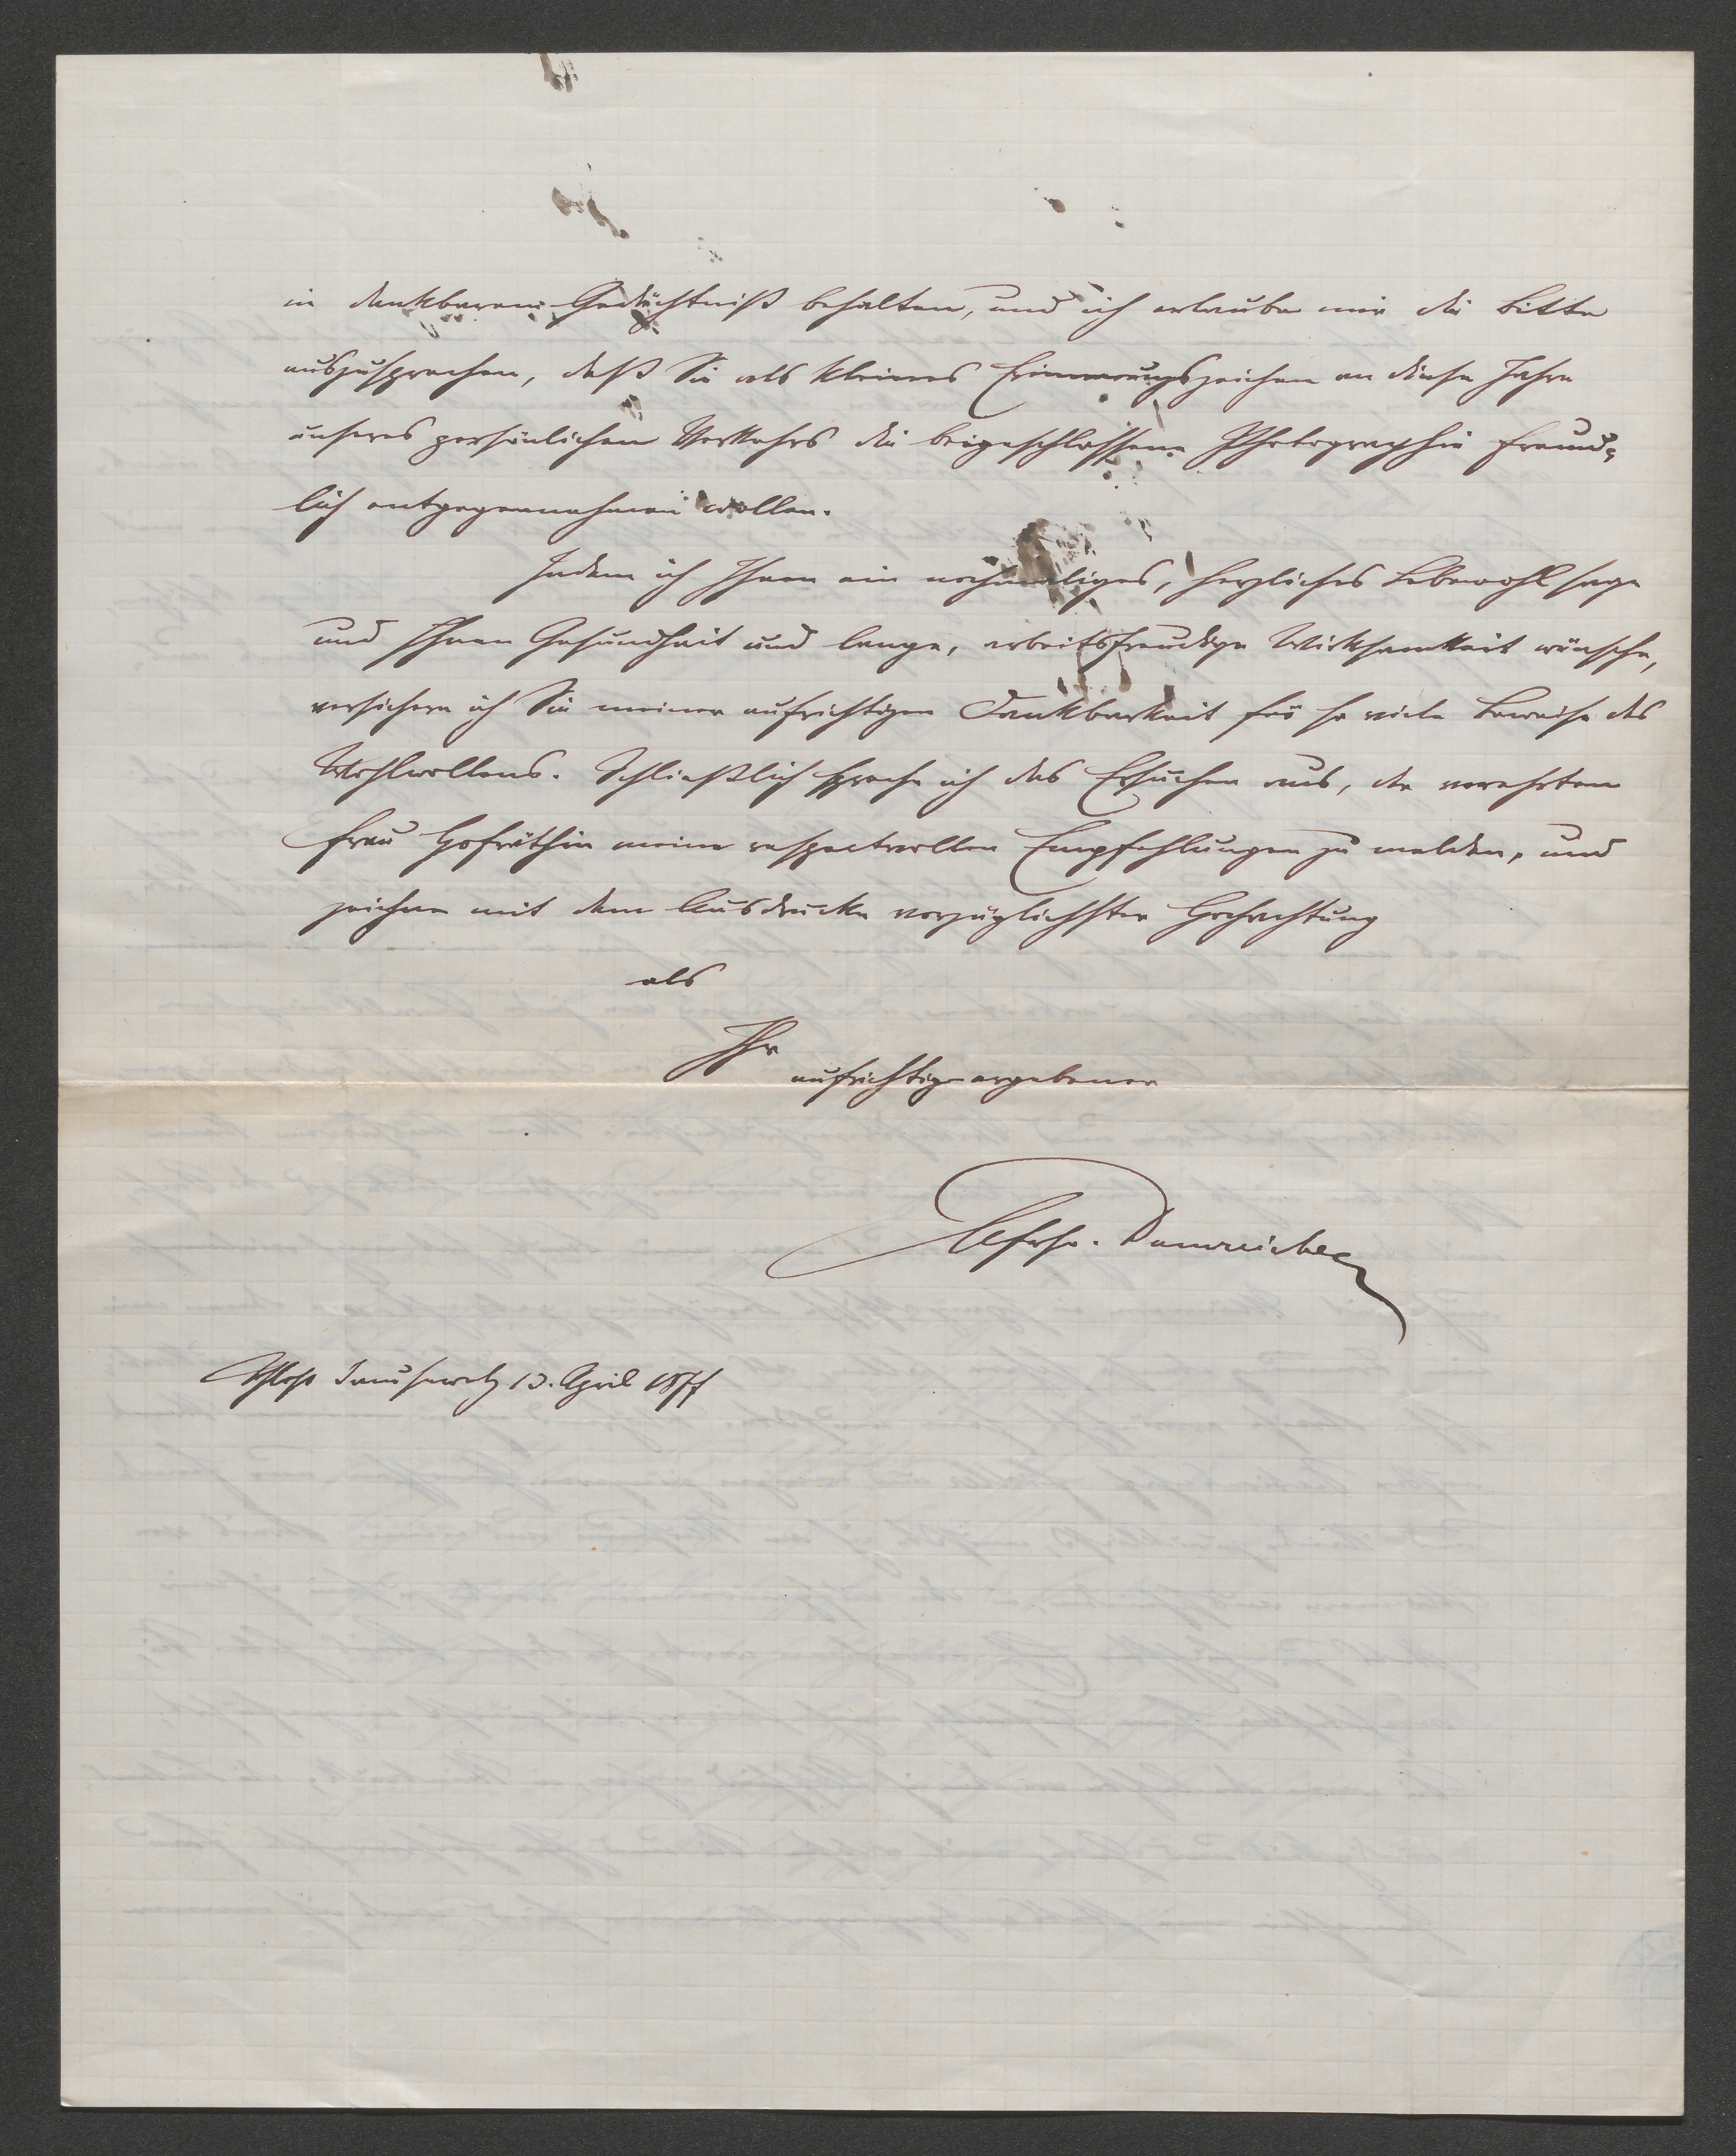 in dankbarem Gedächtniß behalten, und ich erlaube mir die Bitte
auszusprechen, daß Sie als kleines Erinnerungszeichen an diese Jahre
unseres persönlichen Verkehrs die beigeschlossene Photographie freund-
lich entgegennehmen wollen.
Indem ich Ihnen ein nochmaliges, herzliches Lebewohl sage
und Ihnen Gesundheit und lange, arbeitsfreudige Wirksamkeit wünsche,
versichere ich Sie meiner aufrichtigen Dankbarkeit für so viele Beweise des
Wohlwollens. Schließlich spreche ich das Ersuchen aus, der verehrten
Frau Hofräthin meine respectvollen Empfehlungen zu melden, und
zeichne mit dem Ausdrucke vorzüglichster Hochachtung
als
Ihr
aufrichtig ergebener
Dumreicher
Schloß 13. April